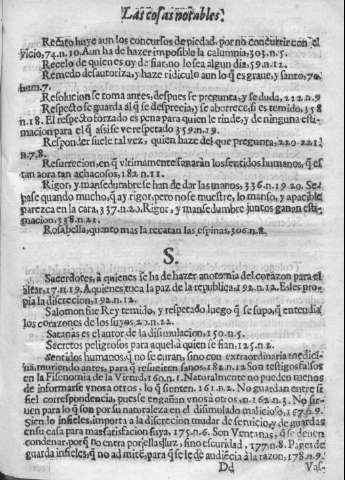 Las cosas notables.
Recato huye aun los concursos de piedad, por no concurrir con el
vicio, 74.n.10. Aun ha de hazer imposible la calumnia, 303.n.5.
Recelo de quien es oy de fiar, no lo sea algun dia, 59.n.12.
Remedo desautoriza, y haze ridiculo aun lo q̃ es graue, y santo, 70.
num.7.
Resolucion se toma antes, despues se pregunta, y se duda, 212.n.9
Respecto se guarda al q̃ se desprecia, y se aborrece, si es temido, 358
n.18. El respecto forzado es pena para quien le rinde, y de ninguna esti-
macion para el q̃ assi se ve respetado 359.n.19.
Responder suele tal vez, quien haze del que pregunta, 220 221
n.7.8.
Resurreccion, en q̃ vltimamente sanaràn los sentidos humanos, q̃ es-
tan aora tan achacosos, 182.n.11.
Rigor, y mansedumbre se han de dar las manos, 336.n.19 20. Se
pase quando mucho, q̃ ay rigor, pero no se muestre, lo manso, y apacible
parezca en la cara, 337.n.20. Rigor, y mansedumbre juntos ganan esti-
macion, 338.n.21.
Rosabella, quanto mas la recatan las espinas, 306.n.8.
S.
Sacerdotes, à quienes se ha de hazer anotomia del corazon para el
altar, 17.n.19. A quienes toca la paz de la republica, 192.n.12. Es les pro-
pia la discrecion, 192.n.12.
Salomon fue Rey temido, y respetado luego q̃ se supo, q̃ entendia
los corazones de los suyos, 20.n.22.
Satanàs es el autor de la dissimulacion, 150.n.5.
Secretos peligrosos para aquel à quien se fian, 125.n.2.
Sentidos humanos, q̃ no se curan, sino con extraordinaria medici-
na, muriendo antes, para q̃ resuciten sanos, 182.n.12 Son testigos falsos
en la Fisonomia de la Virtud, 160.n.1. Naturalmente no pueden menos
de informarse vnos a otros, lo q̃ sienten. 161.n.2. No guardan entre si
fiel correspondencia, pues se engañan vnos à otros, n.162.n.3. No sir-
uen para lo q̃ son por su naturaleza en el disimulado malicioso, 167.n.9.
Siendo infieles, importa a la discrecion mudar de seruicio, y de guardas
en su casa para mas satisfaccion suya, 175.n.6. Son Ventanas, q̃ se deuen
condenar, porq̃ no entra por ellas luz, sino escuridad, 177.n.8. Pages de
guarda infieles, q̃ no admitẽ, para q̃ se le dè audiẽcia à la razon, 178.n.9.
Dd Vas-